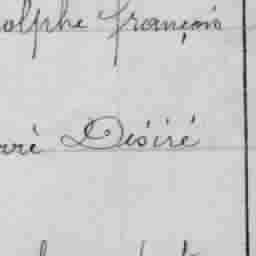 olphe françois
rré Désiré